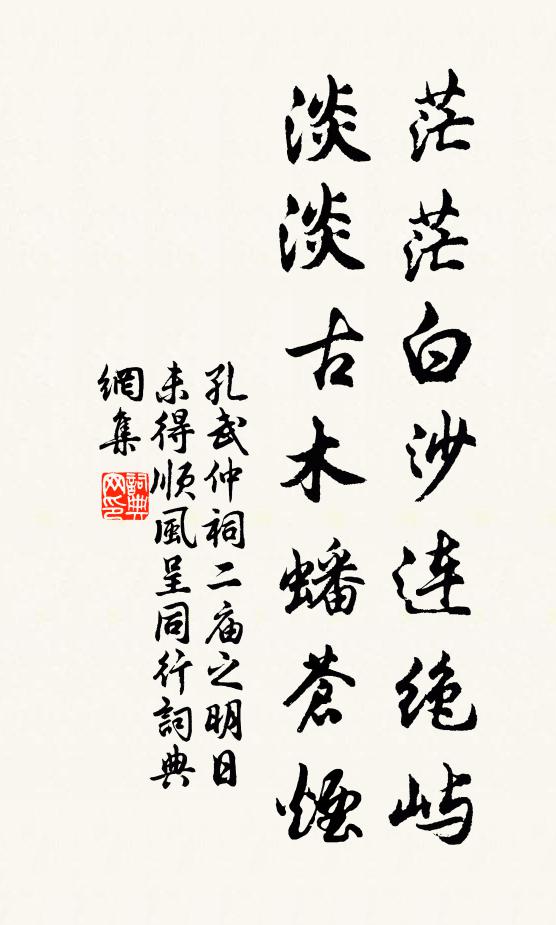 茫茫白沙连绝屿
淡淡古木蟠苍煙
孔武仲祠二庙之明日
未得顺風呈同行詞典
網集
詞典
网印